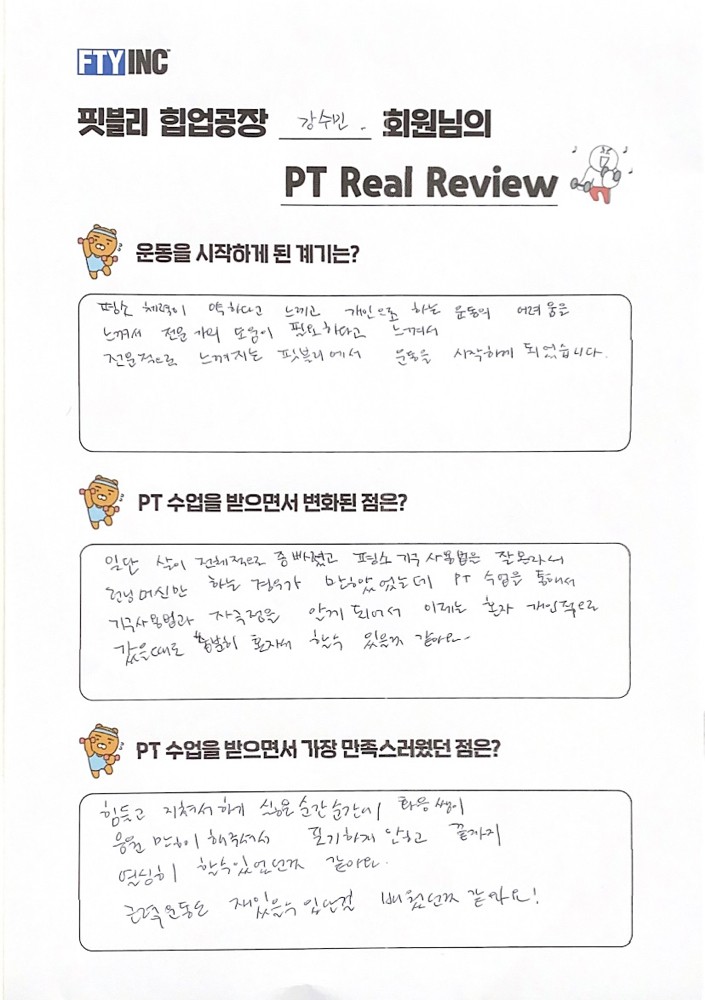 FTY INC
핏블리 힙업공장 강수민 회원님의
PT Real Review
운동을 시작하게 된 계기는?
평소 체력이 약하다고 느끼고 개인으로 하는 운동의 어려움을
느껴서 전문가의 도움이 필요하다고 느껴서
전문적으로 느껴지는 핏블리에서 운동을 시작하게 되었습니다.
PT 수업을 받으면서 변화된 점은?
일단 살이 전체적으로 좀 빠졌고 평소 기구 사용법은 잘 모르니
런닝머신만 하는 경우가 많았었는데 PT 수업을 통해서
기구사용법과 자극점을 알게 되어서 이제는 혼자 개인적으로
갔을때도 충분히 혼자서 할수 있을거 같아요.
PT 수업을 받으면서 가장 만족스러웠던 점은?
힘들고 지쳐서 하기 싫은 순간순간마다 쌤이
응원 많이 해주셔서 포기하지 않고 끝까지
열심히 할수있었던거 같아요.
근력운동도 재밌을수 있단걸 배웠던거 같아요!